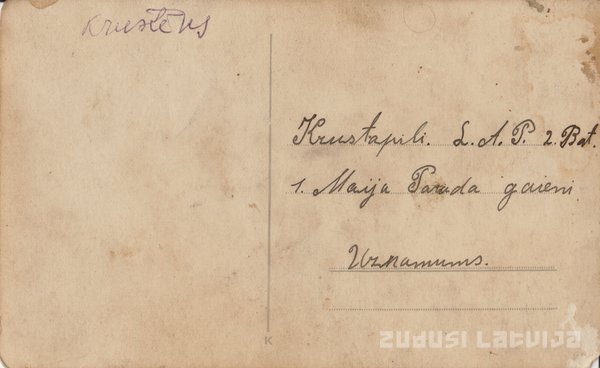 Krustapili. L. A. P. 2. Bat.
1. Maija Parada gaieni
Uzņamums.
K
ZUDUSI LATVIJA